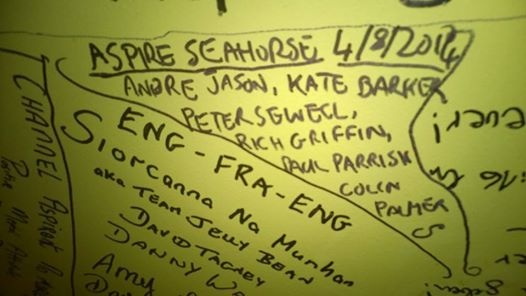 ASPIRE SEAHORSE 4/8/2014
ANDRE JASON, KATE BARKER
PETER SEWELL,
RICH GRIFFIN,
PAUL PARRISH
COLIN
PALMER
ENG - FRA - ENG
Siorcanna Na Mumhan
aka TEAM JELLY BEAN
DAVID TAGNEY
DANNY
Amy
CHANNEL ASPIRE
ever!